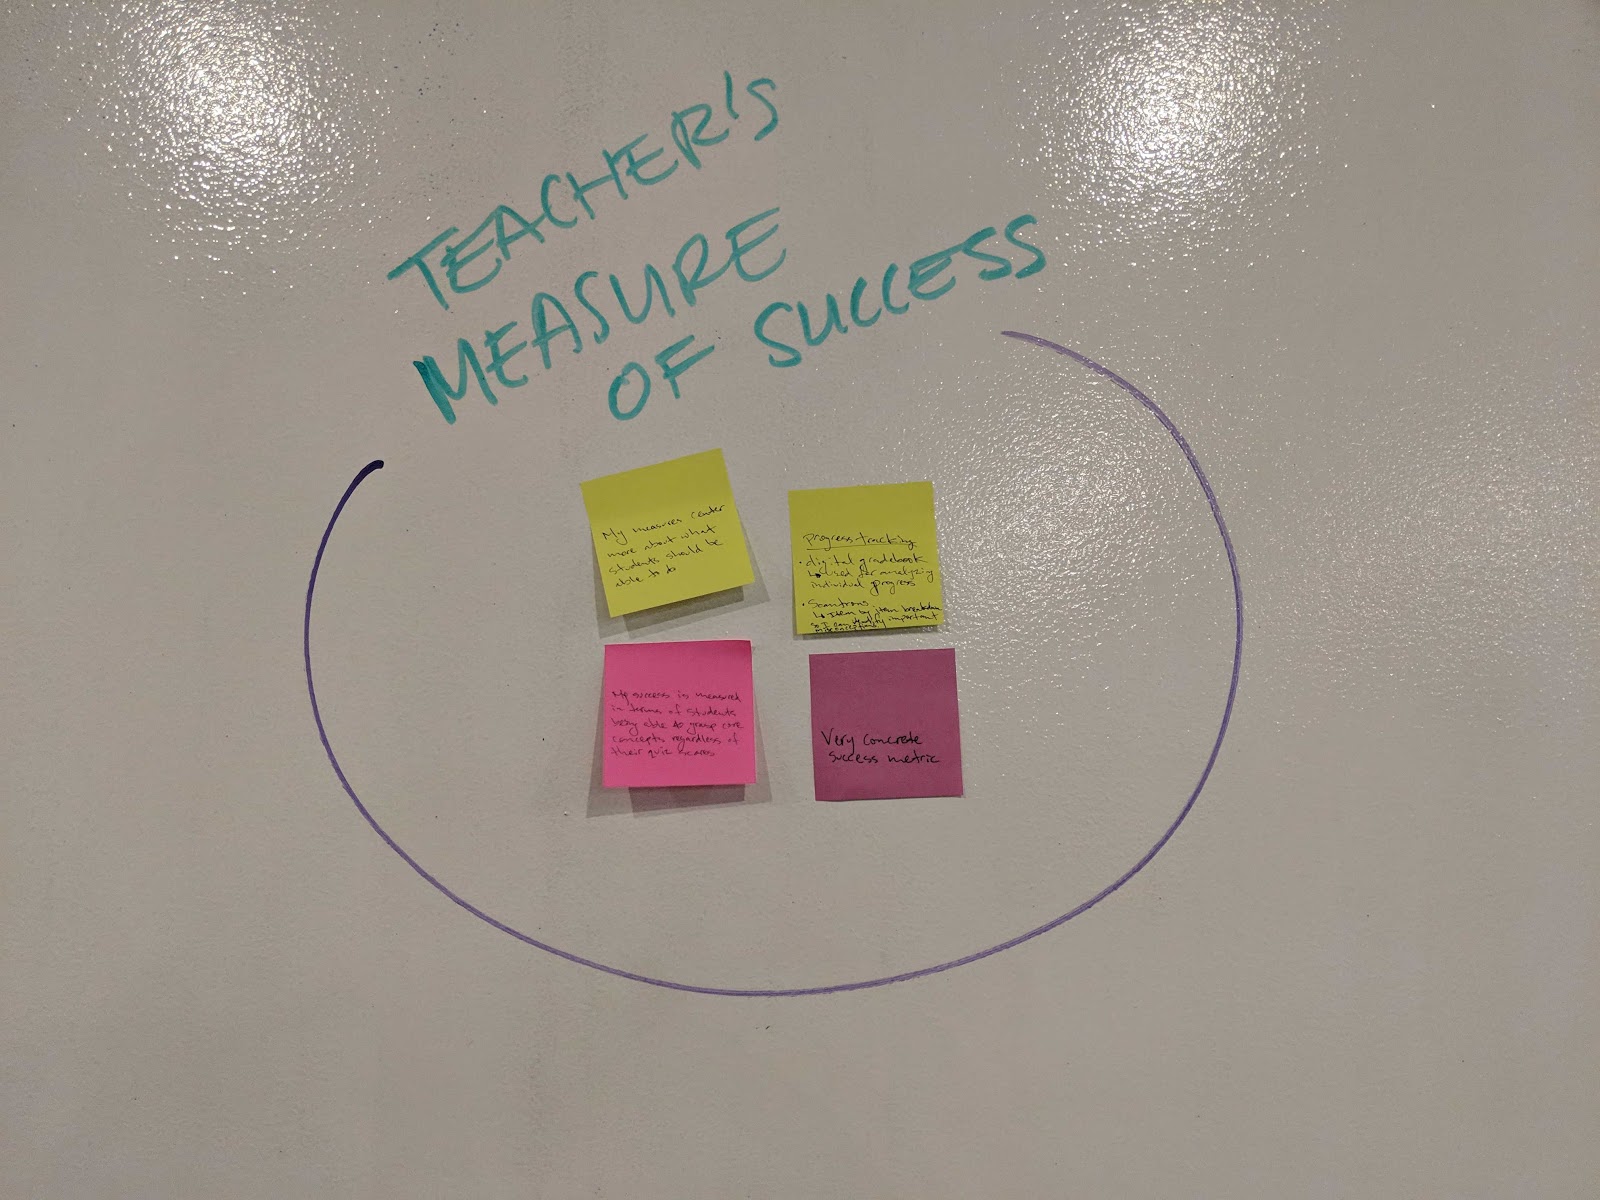 TEACHER'S
MEASURE
OF SUCCESS
My measures center
more about what
students should be
able to do
progress-tracking
• digital gradebook
↳ used for analyzing
individual progress
• Scantrons
↳ Item by item breakdown
so I can identify important
misconceptions
My success is measured
in terms of students
being able to grasp core
concepts regardless of
their quiz scores
Very concrete
success metric